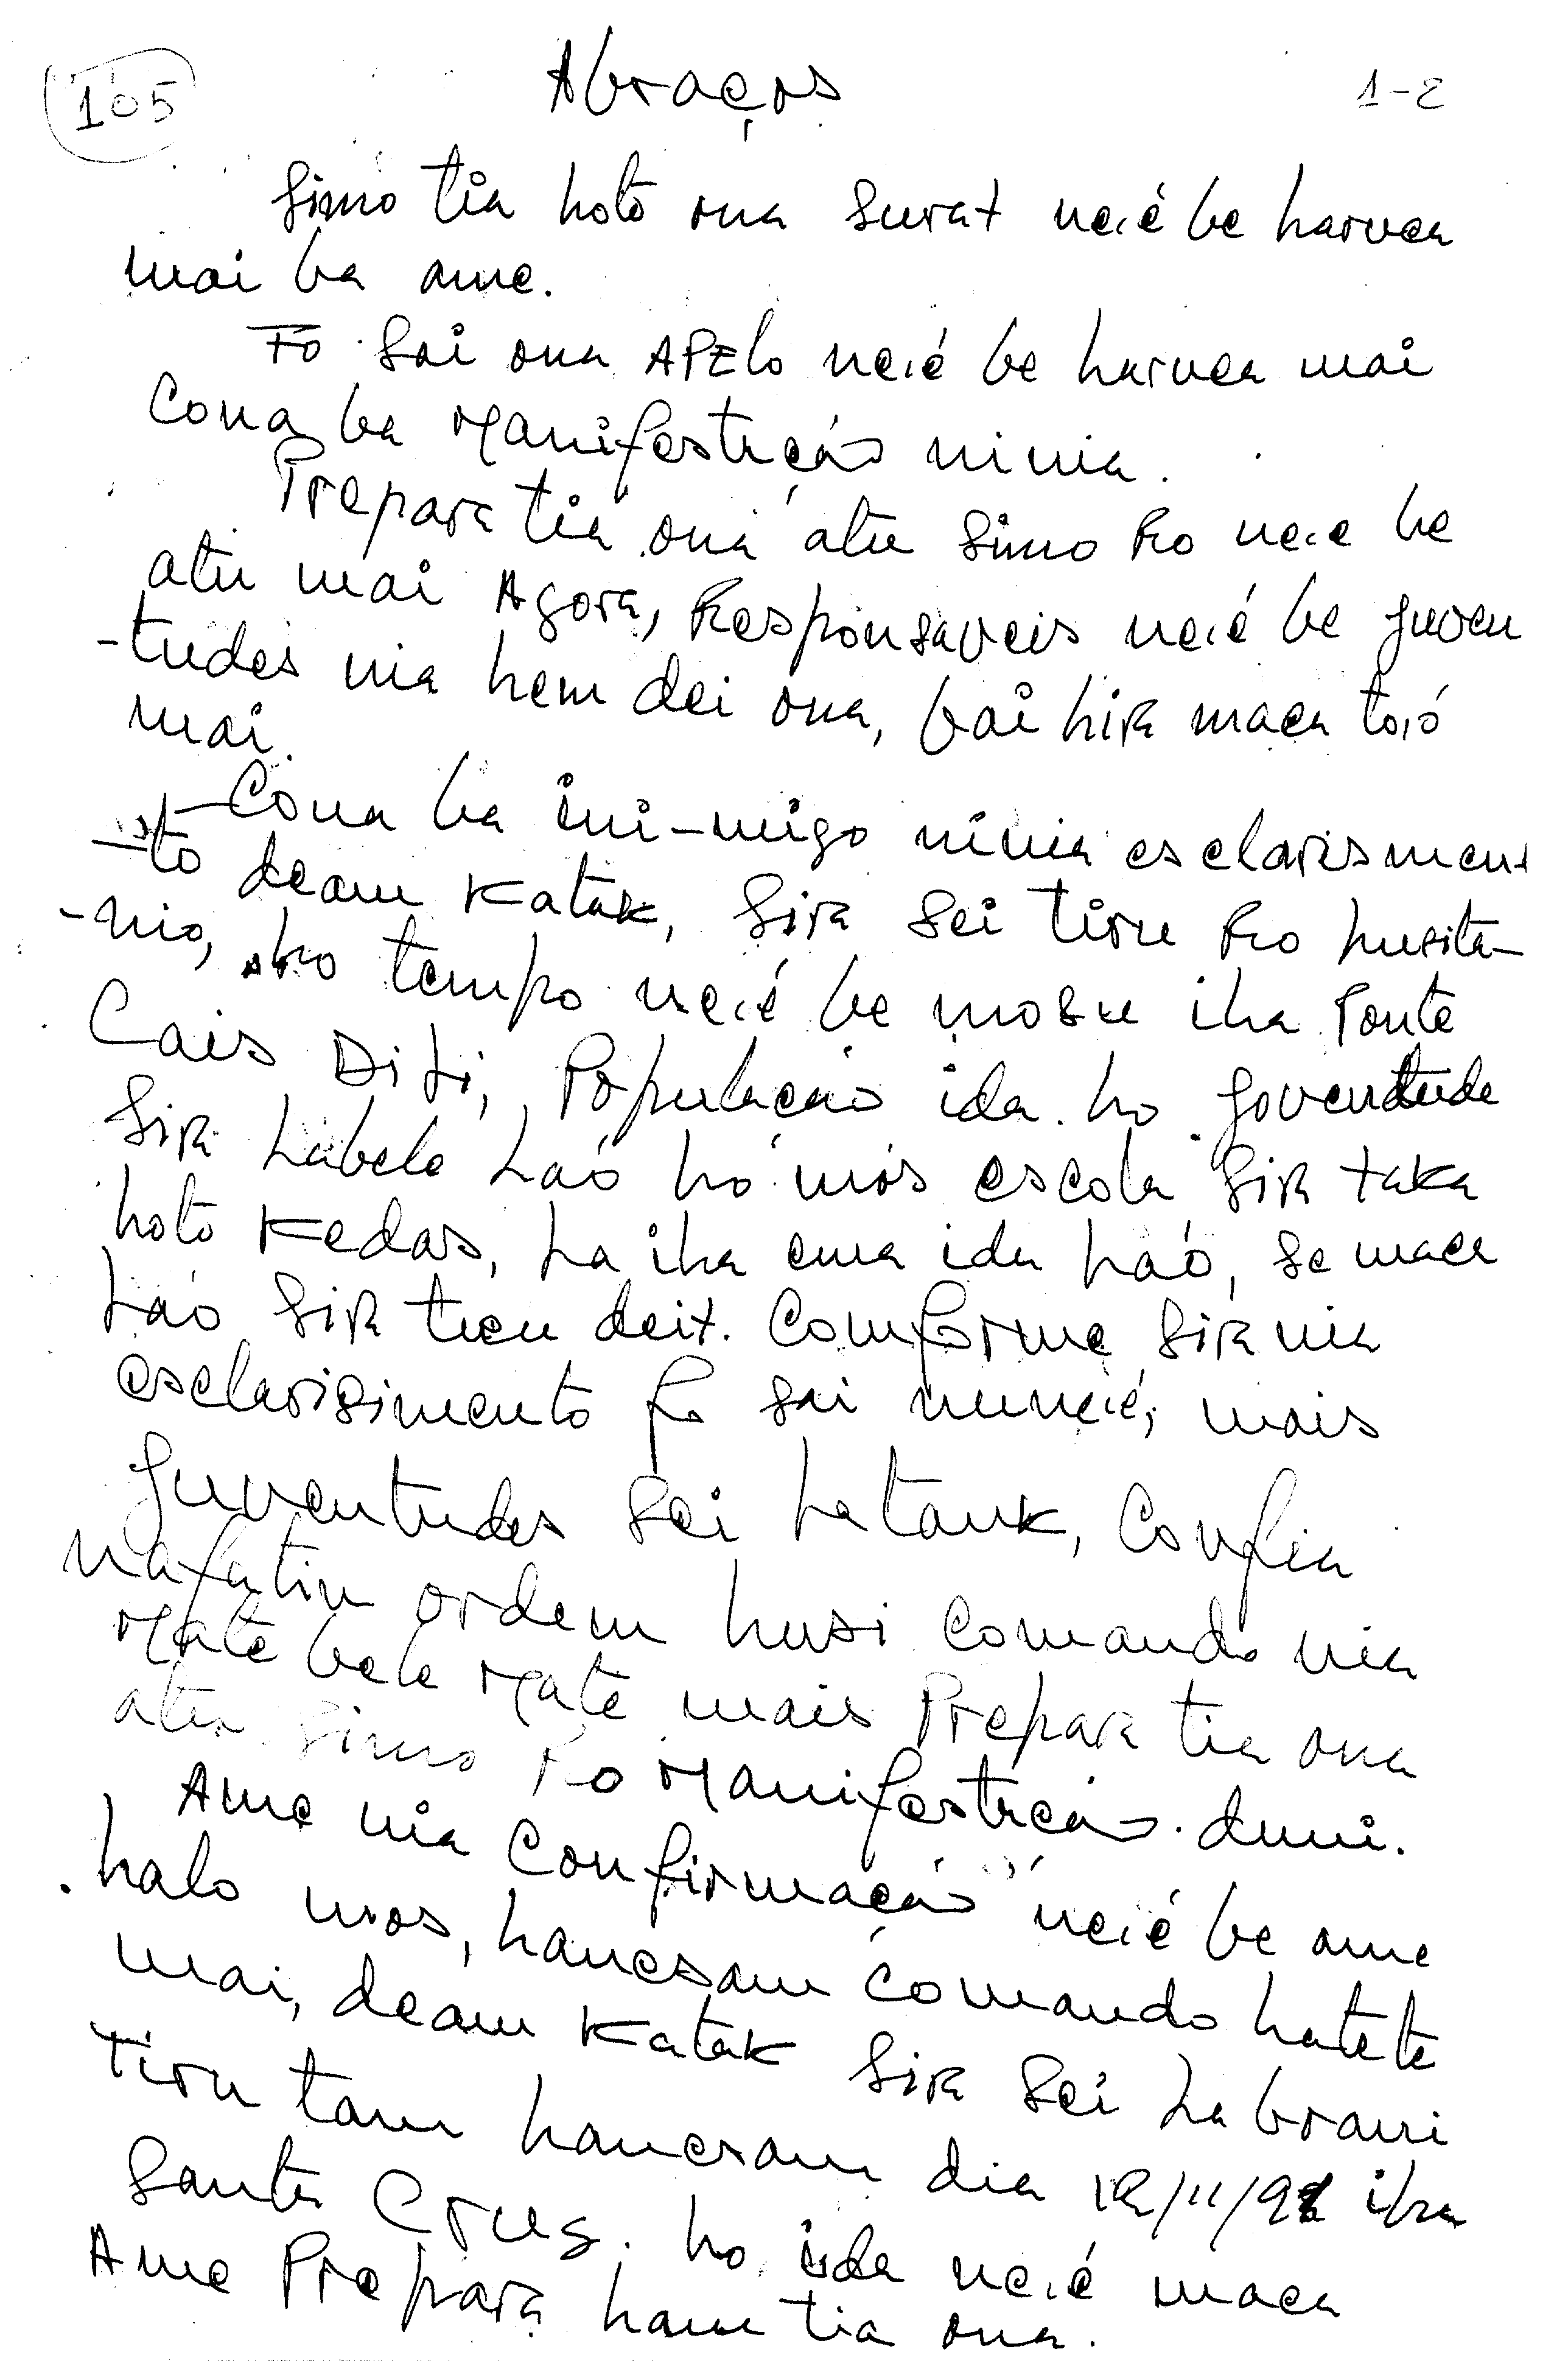 105
Abraços
1-2
Simo tia hotó ona surat neié be haruca
mai ba ame.
Fó sai ona APElo neié be haruca mai
Cona ba Manifestição ninia.
Prepara tia ona atu simo Ro neie be
atu mai Agora, Responsaveis neié be juven
-tudes nia hem dei ona, bai hira maca toió
mai.
- Cona ba ini-migo ninia esclarismen
-to deam Katak, Sira sei tiru Ro husita-
-nio, ho tempo neié be mosu iha Ponte
Cais Dili, População ida ho joventude
Sira Labele Laó ho mós escola sira taka
hotó Kedas, La iha ema ida Laó, se maca
Laó sira tucu deit. Comforme sira nia
esclarisimento fo sai nuneié, mais
juventudes sei La tauk, Confia
nafatin ordem husi Comando nia
Mate bele Mate mais Prepara tia ona
atu simo Ro Manifestição. duni.
Ame nia Confirmação neié be ame
halo mos, hanesam Comando hatete
mai, deam Katak sira sei La brani
Tiru tam hanesam dia 12/11/91 iha
Santa Crus. ho ida neié maca
Ame Prepara ham tia ona.